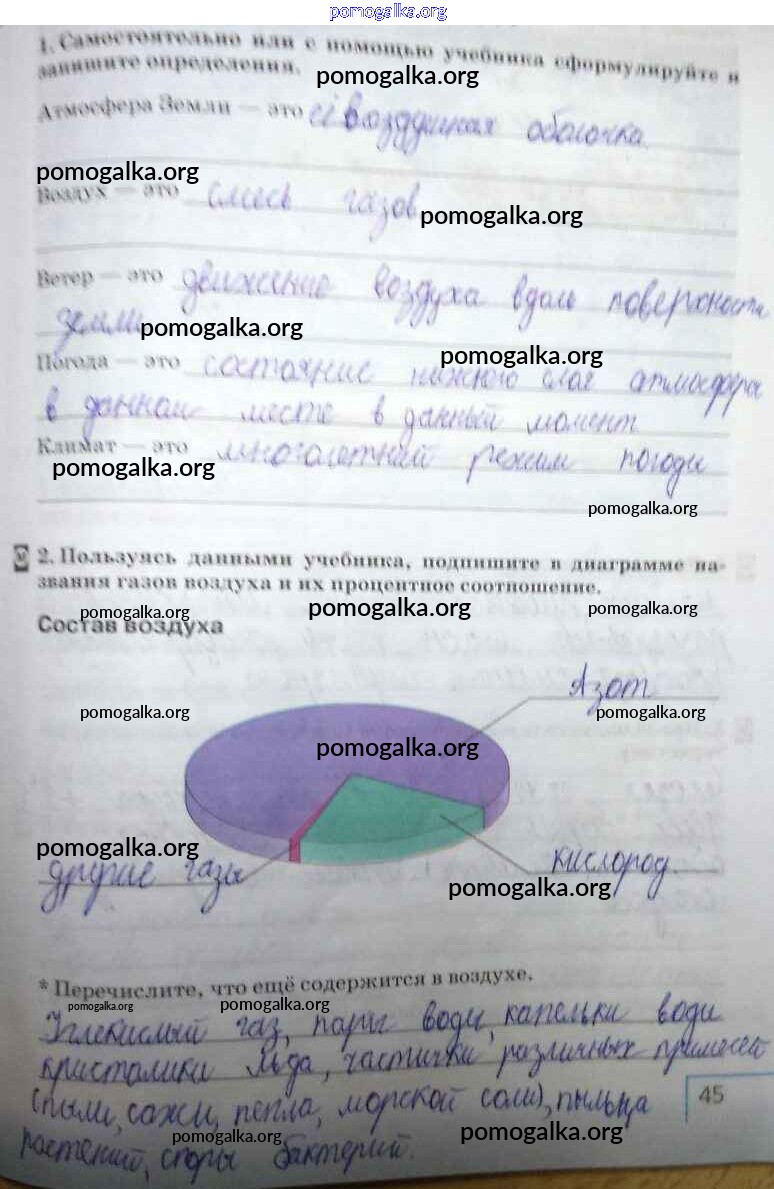 pomogalka.org
1. Самостоятельно или с помощью учебника сформулируйте и
запишите определения.
pomogalka.org
Атмосфера Земли — это её воздушная оболочка.
pomogalka.org
Воздух — это смесь газов
pomogalka.org
Ветер — это движение воздуха вдоль поверхности
земли
pomogalka.org
pomogalka.org
Погода — это состояние нижнего слоя атмосферы
в данном месте в данный момент
Климат — это многолетний режим погоды
pomogalka.org
pomogalka.org
2. Пользуясь данными учебника, подпишите в диаграмме на-
звания газов воздуха и их процентное соотношение.
pomogalka.org pomogalka.org pomogalka.org
Состав воздуха
Азот
pomogalka.org pomogalka.org
pomogalka.org
pomogalka.org
другие газы
кислород.
pomogalka.org
* Перечислите, что ещё содержится в воздухе.
pomogalka.org pomogalka.org
Углекислый газ, пары воды, капельки воды
кристалики льда, частички различных примесей
(пыли, сажи, пепла, морской соли), пыльца
45
pomogalka.org pomogalka.org
растений, споры бактерий.